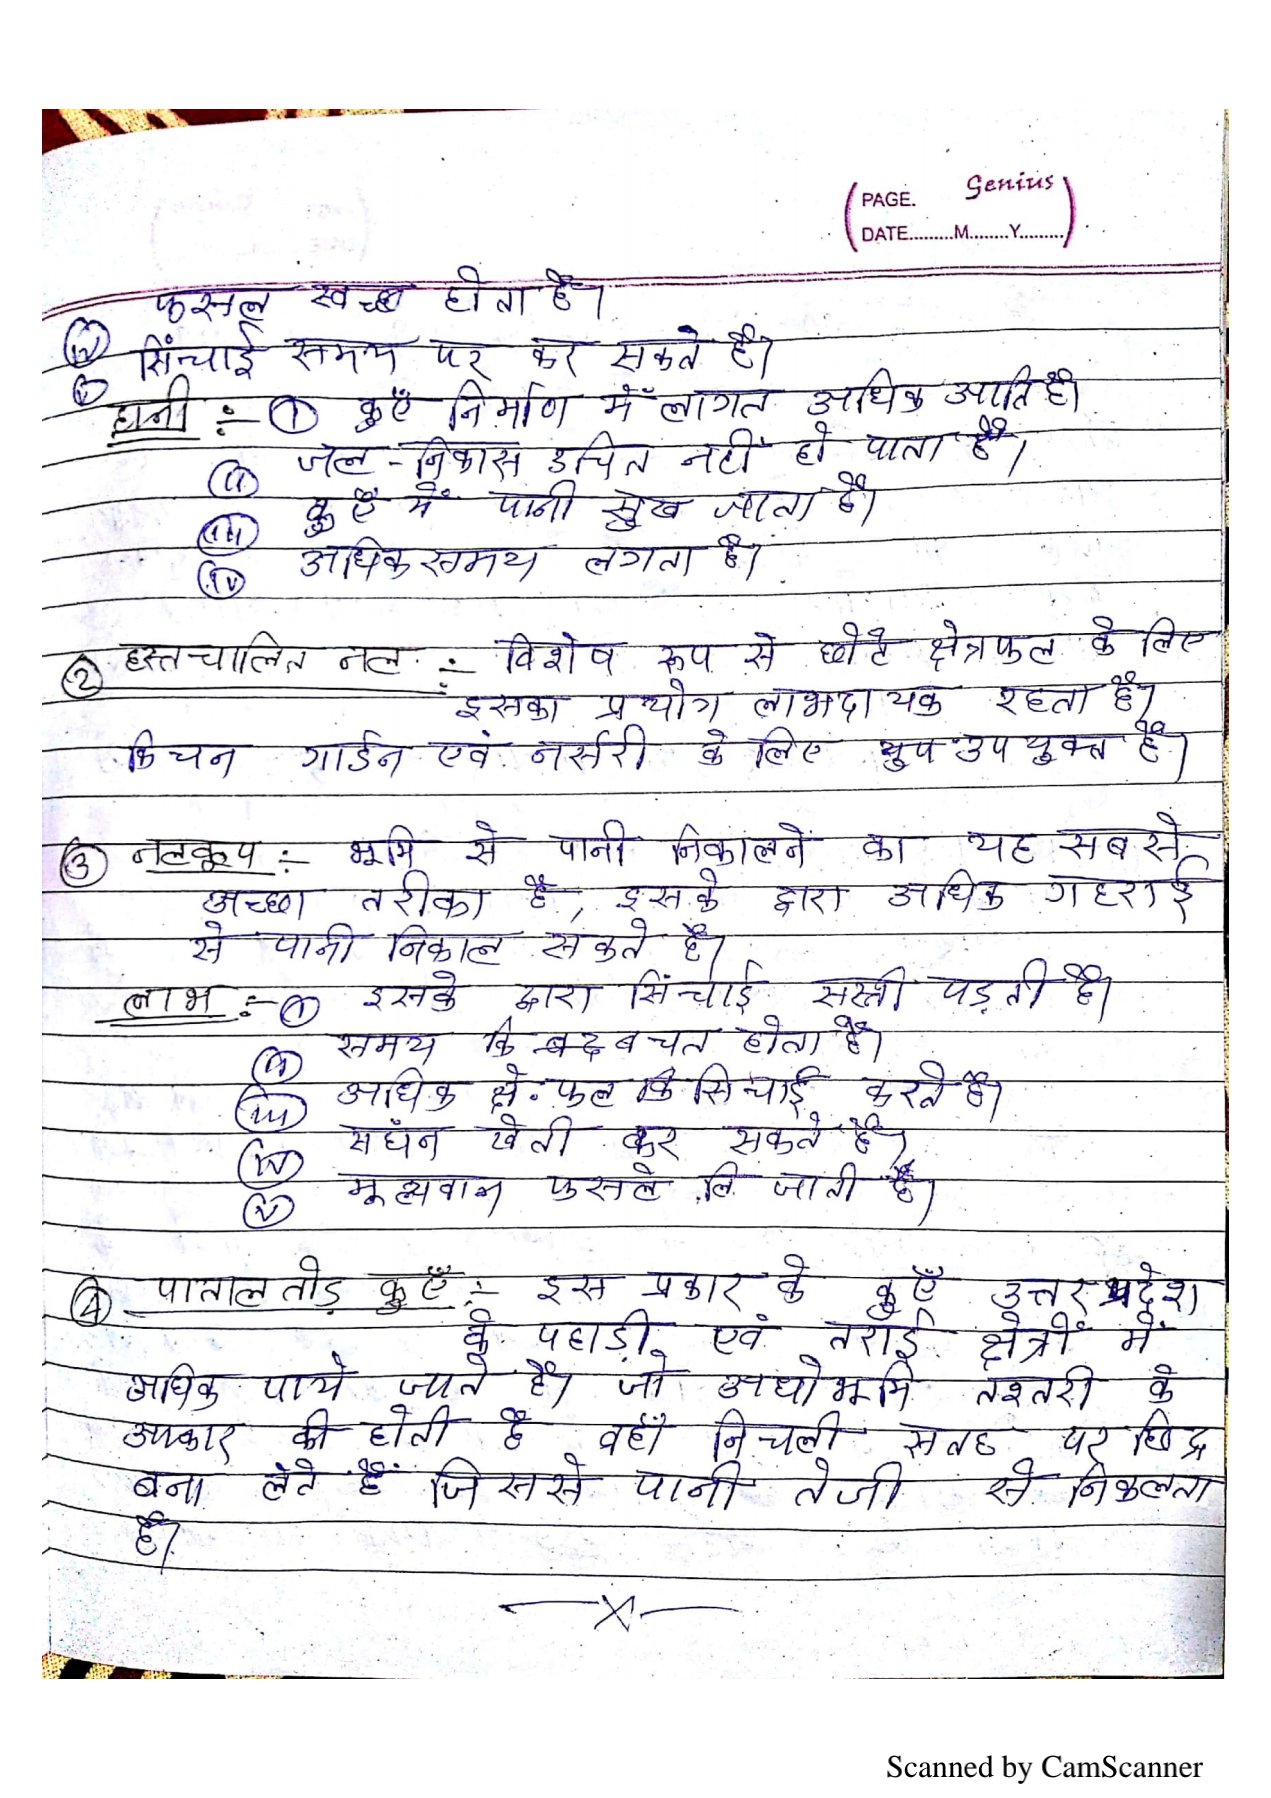 Genius
PAGE.
DATE.........M........Y.........
फसल स्वच्छ होता है।
(iv) सिंचाई समय पर कर सकते है।
(v)
हानी :- (i) कुएँ निर्माण में लागत अधिक आति है।
(ii) जल-निकास उचित नहीं हो पाता है।
(iii) कुएँ में पानी सुख जाता है।
(iv) अधिक समय लगता है।
(2) हस्तचालित नल :- विशेष रूप से छोटे क्षेत्रफल के लिए
इसका प्रयोग लाभदायक रहता है।
किचन गार्डन एवं नर्सरी के लिए उपयुक्त है।
(3) नलकूप :- भूमि से पानी निकालने का यह सबसे
अच्छा तरीका है, इसके द्वारा अधिक गहराई
से पानी निकाल सकते है।
लाभ :- (i) इसके द्वारा सिंचाई सस्ती पड़ती है।
(ii) समय कि बचत होता है।
(iii) अधिक क्षे.फल कि सिचाई करते है।
(iv) सघँन खेती कर सकते है।
(v) मूल्यवान फसले लि जाती है।
(4) पाताल तोड़ कुएँ :- इस प्रकार के कुएँ उत्तर प्रदेश
के पहाड़ी एवं तराई क्षेत्रों में
अधिक पाये जाते हैं। जो अधोभूमि तश्तरी के
आकार की होती है वहाँ निचली सतह पर छिद्र
बना लेते हैं जिससे पानी तेजी से निकलता
है।
—x—
Scanned by CamScanner